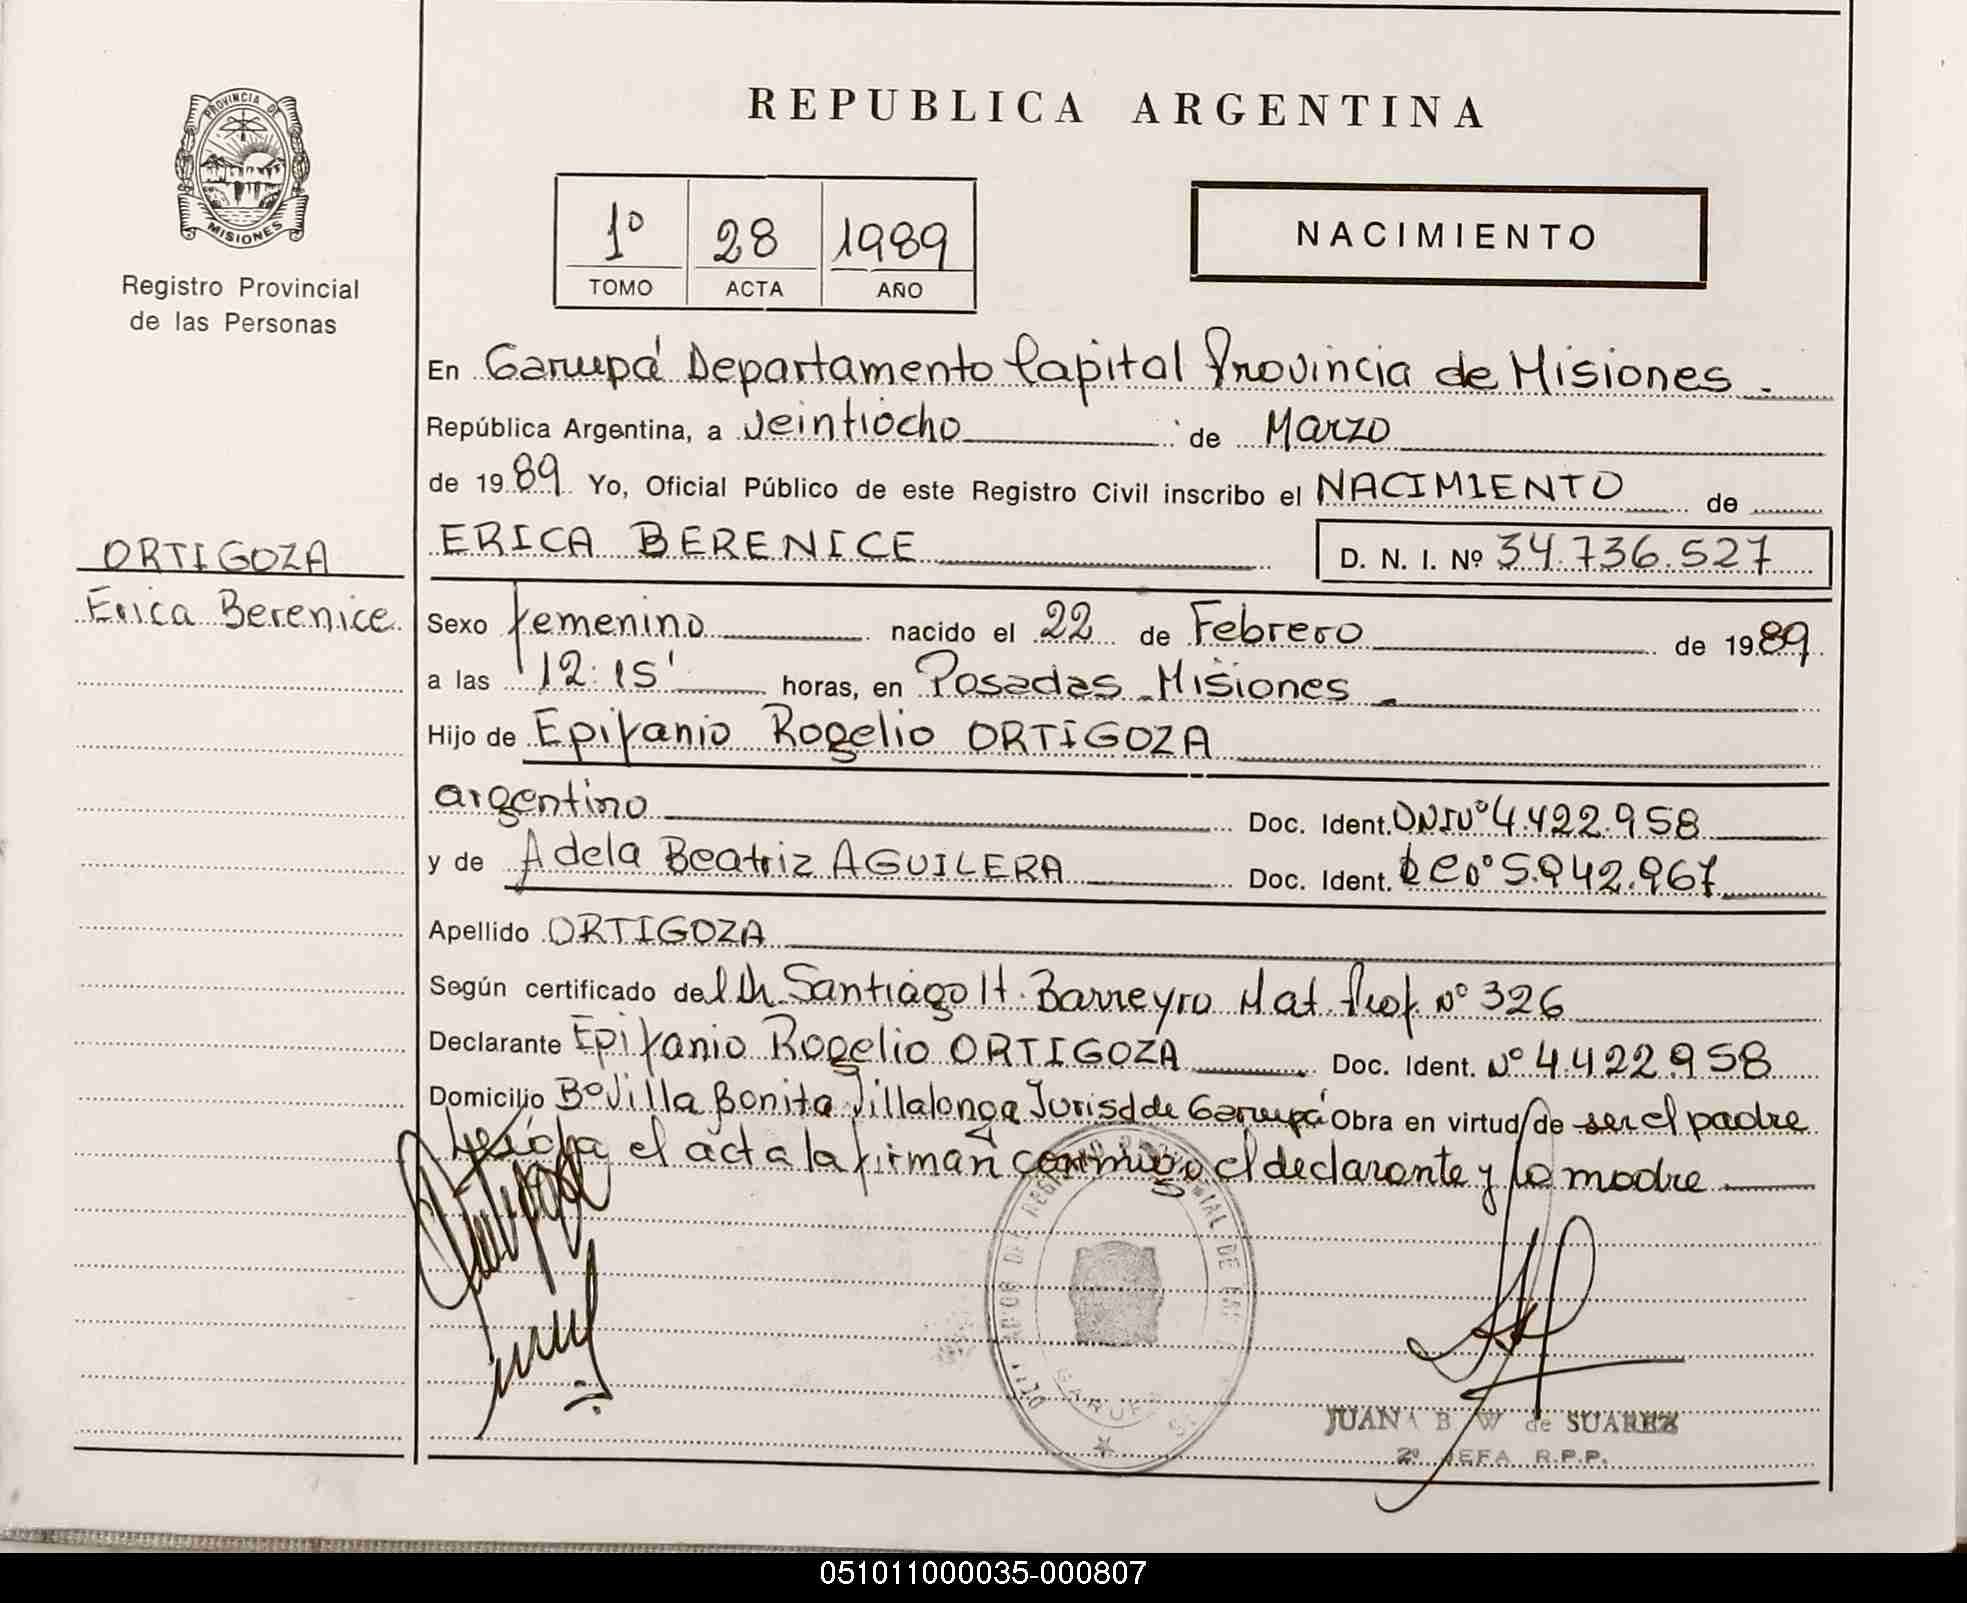 PROVINCIA DE
MISIONES
Registro Provincial
de las Personas
ORTIGOZA
Erica Berenice
REPUBLICA ARGENTINA
1º 28 1989
TOMO ACTA AÑO
NACIMIENTO
En Garupá Departamento Capital Provincia de Misiones
República Argentina, a veintiocho de Marzo
de 1989 Yo, Oficial Público de este Registro Civil inscribo el NACIMIENTO de
ERICA BERENICE D. N. I. Nº 34.736.527
Sexo femenino nacido el 22 de Febrero de 1989
a las 12:15' horas, en Posadas Misiones
Hijo de Epifanio Rogelio ORTIGOZA
argentino Doc. Ident. DNI Nº 4.422.958
y de Adela Beatriz AGUILERA Doc. Ident. LC Nº 5.942.967
Apellido ORTIGOZA
Según certificado del Dr. Santiago H. Barreyro Mat. Prof. Nº 326
Declarante Epifanio Rogelio ORTIGOZA Doc. Ident. Nº 4.422.958
Domicilio Bº Villa Bonita Villalonga Jurisd de Garupá Obra en virtud de ser el padre
el acta la firman conmigo el declarante y la madre
GARUPA
JUANA B. W de SUAREZ
2º JEFA R.P.P.
051011000035-000807